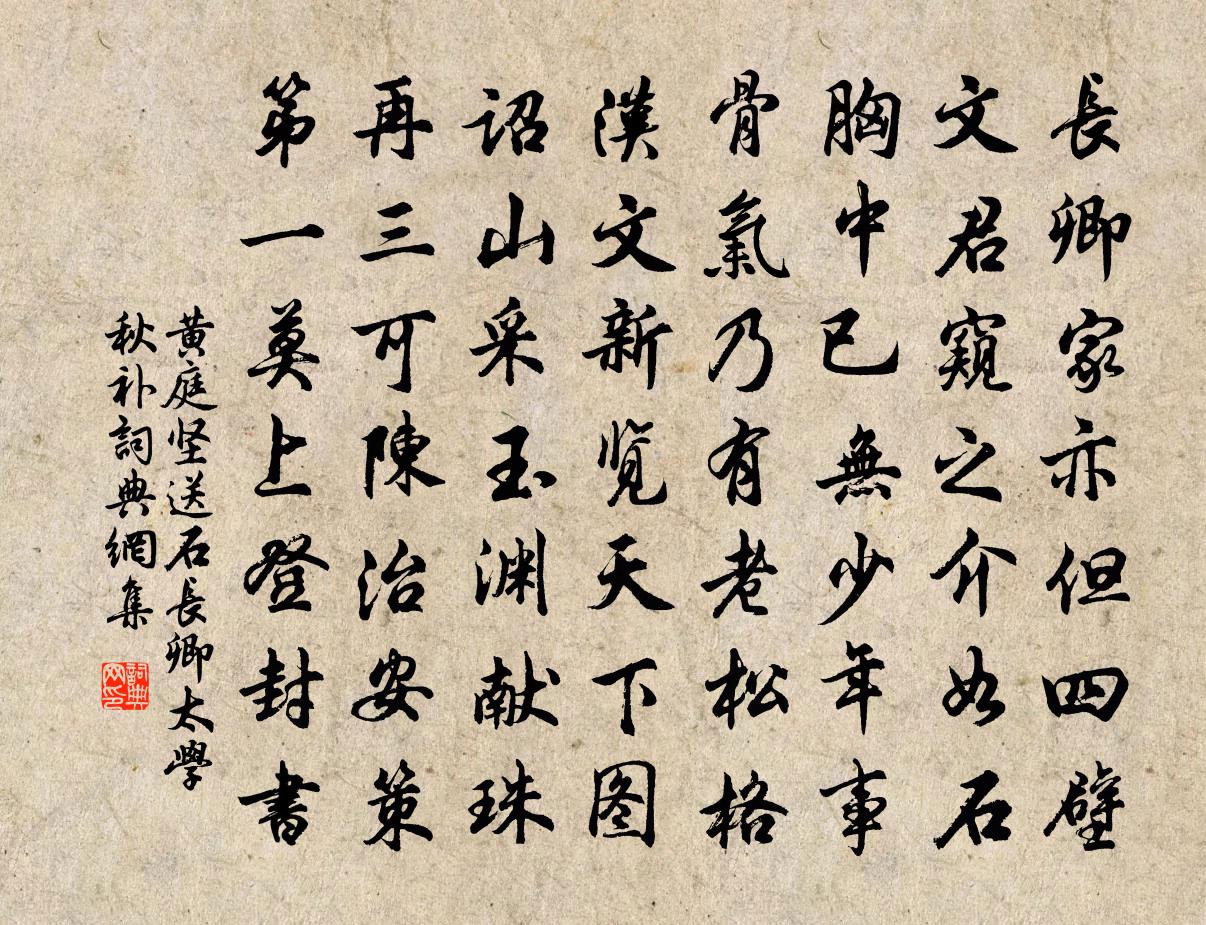 長卿家亦但四壁
文君窺之介如石
胸中已無少年事
骨氣乃有老松格
漢文新览天下图
詔山采玉渊献珠
再三可陳治安策
第一莫上登封書
黄庭坚送石長卿太學
秋补詞典網集
詞典網印